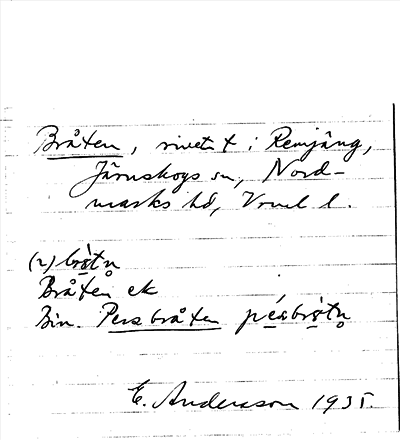 Bråten, rivet t i Remjäng,
Järnskogs sn, Nord-
marks hd, Vrml l.
(2) brò̜tn̥
Bråten ek
Bin. Persbråten pé̜sbrò̜tn̥
E. Andersson 1935.